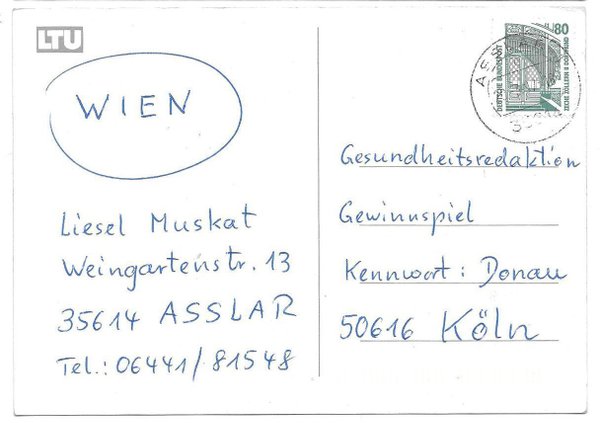 LTU
WIEN
Liesel Muskat
Weingartenstr. 13
35614 ASSLAR
Tel.: 06441/81548
80
DEUTSCHE BUNDESPOST
ZECHE ZOLLERN II DORTMUND
ASSLAR
Gesundheitsredaktion
Gewinnspiel
Kennwort: Donau
50616 Köln